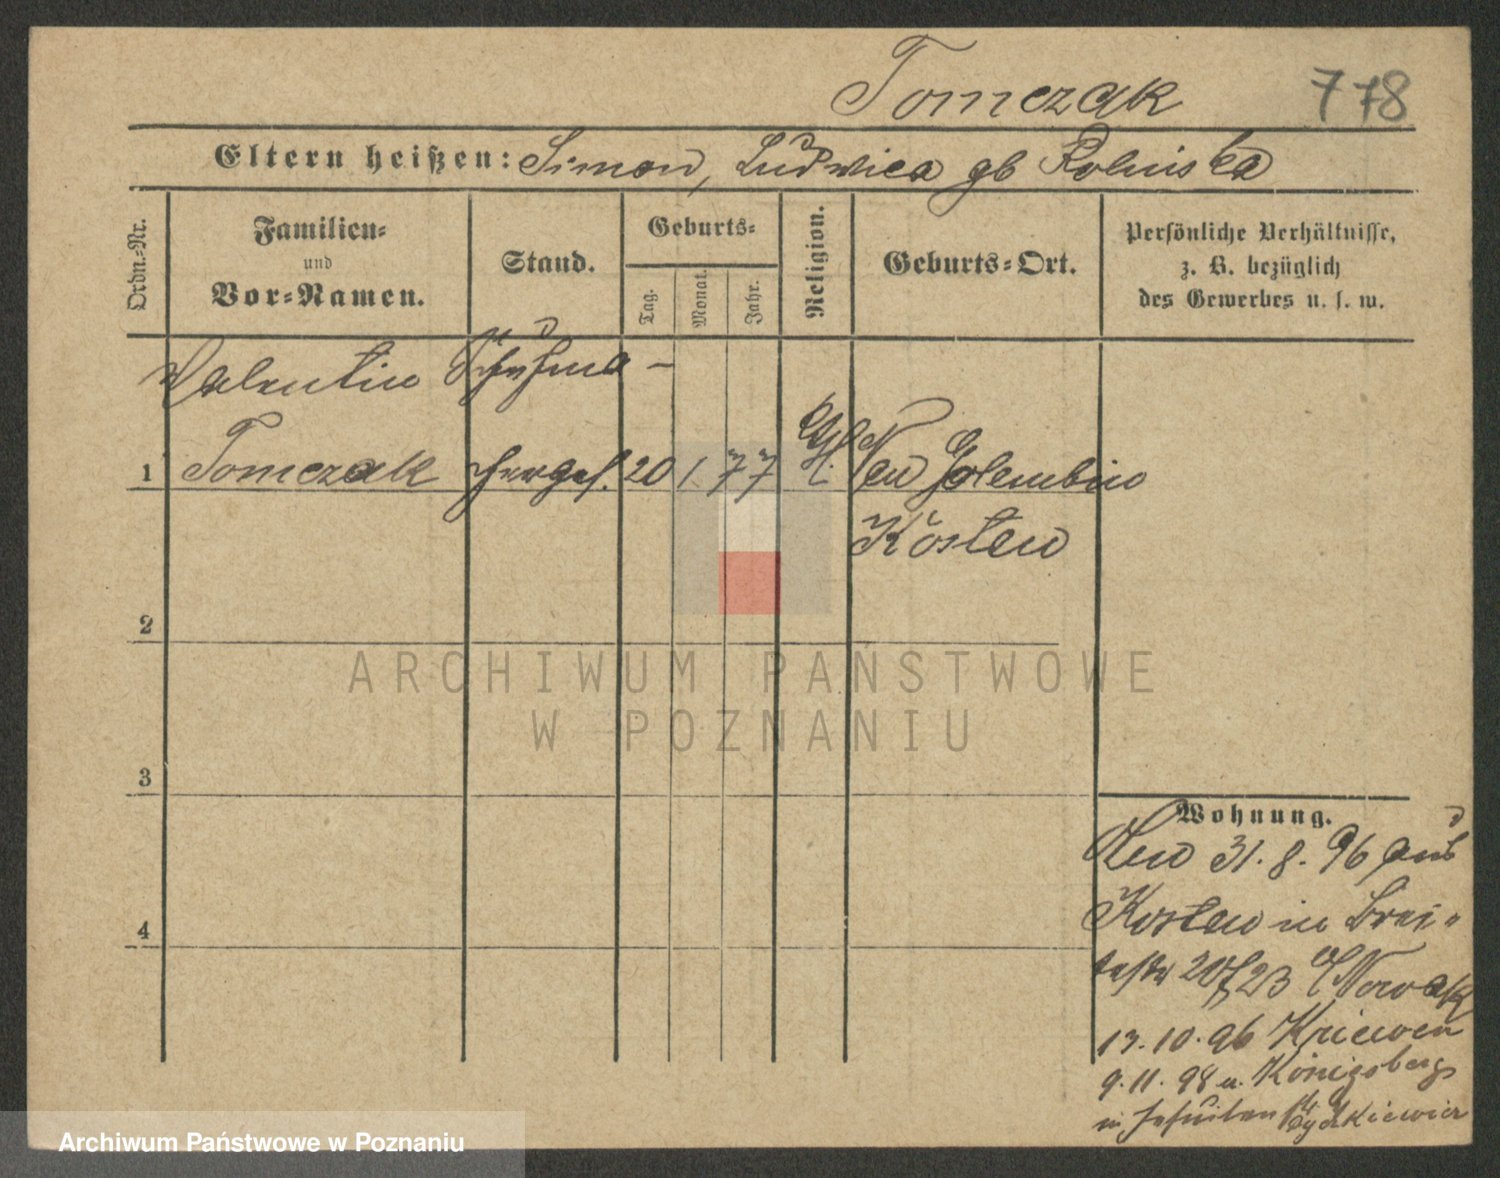 Tomczak 778
Eltern heißen: Simon, Ludwica gb Rolniska
Ordn.-Nr.
Familien-
und
Vor-Namen.
Stand.
Geburts-
Tag.
Monat.
Jahr.
Religion.
Geburts-Ort.
Persönliche Verhältnisse,
z. B. bezüglich
des Gewerbes u. s. w.
Valentin Schuhma-
1 Tomczak chergef. 20 1. 77 Neu Golembin
Kosten
2
3
4
Wohnung.
Neu 31. 8. 96 aus
Kosten in Brei-
20/23 Nowak
13. 10. 96 Kriewen
9. 11. 98 u. Königsberg
in Jesuiten
ARCHIWUM PAŃSTWOWE
W POZNANIU
Archiwum Państwowe w Poznaniu